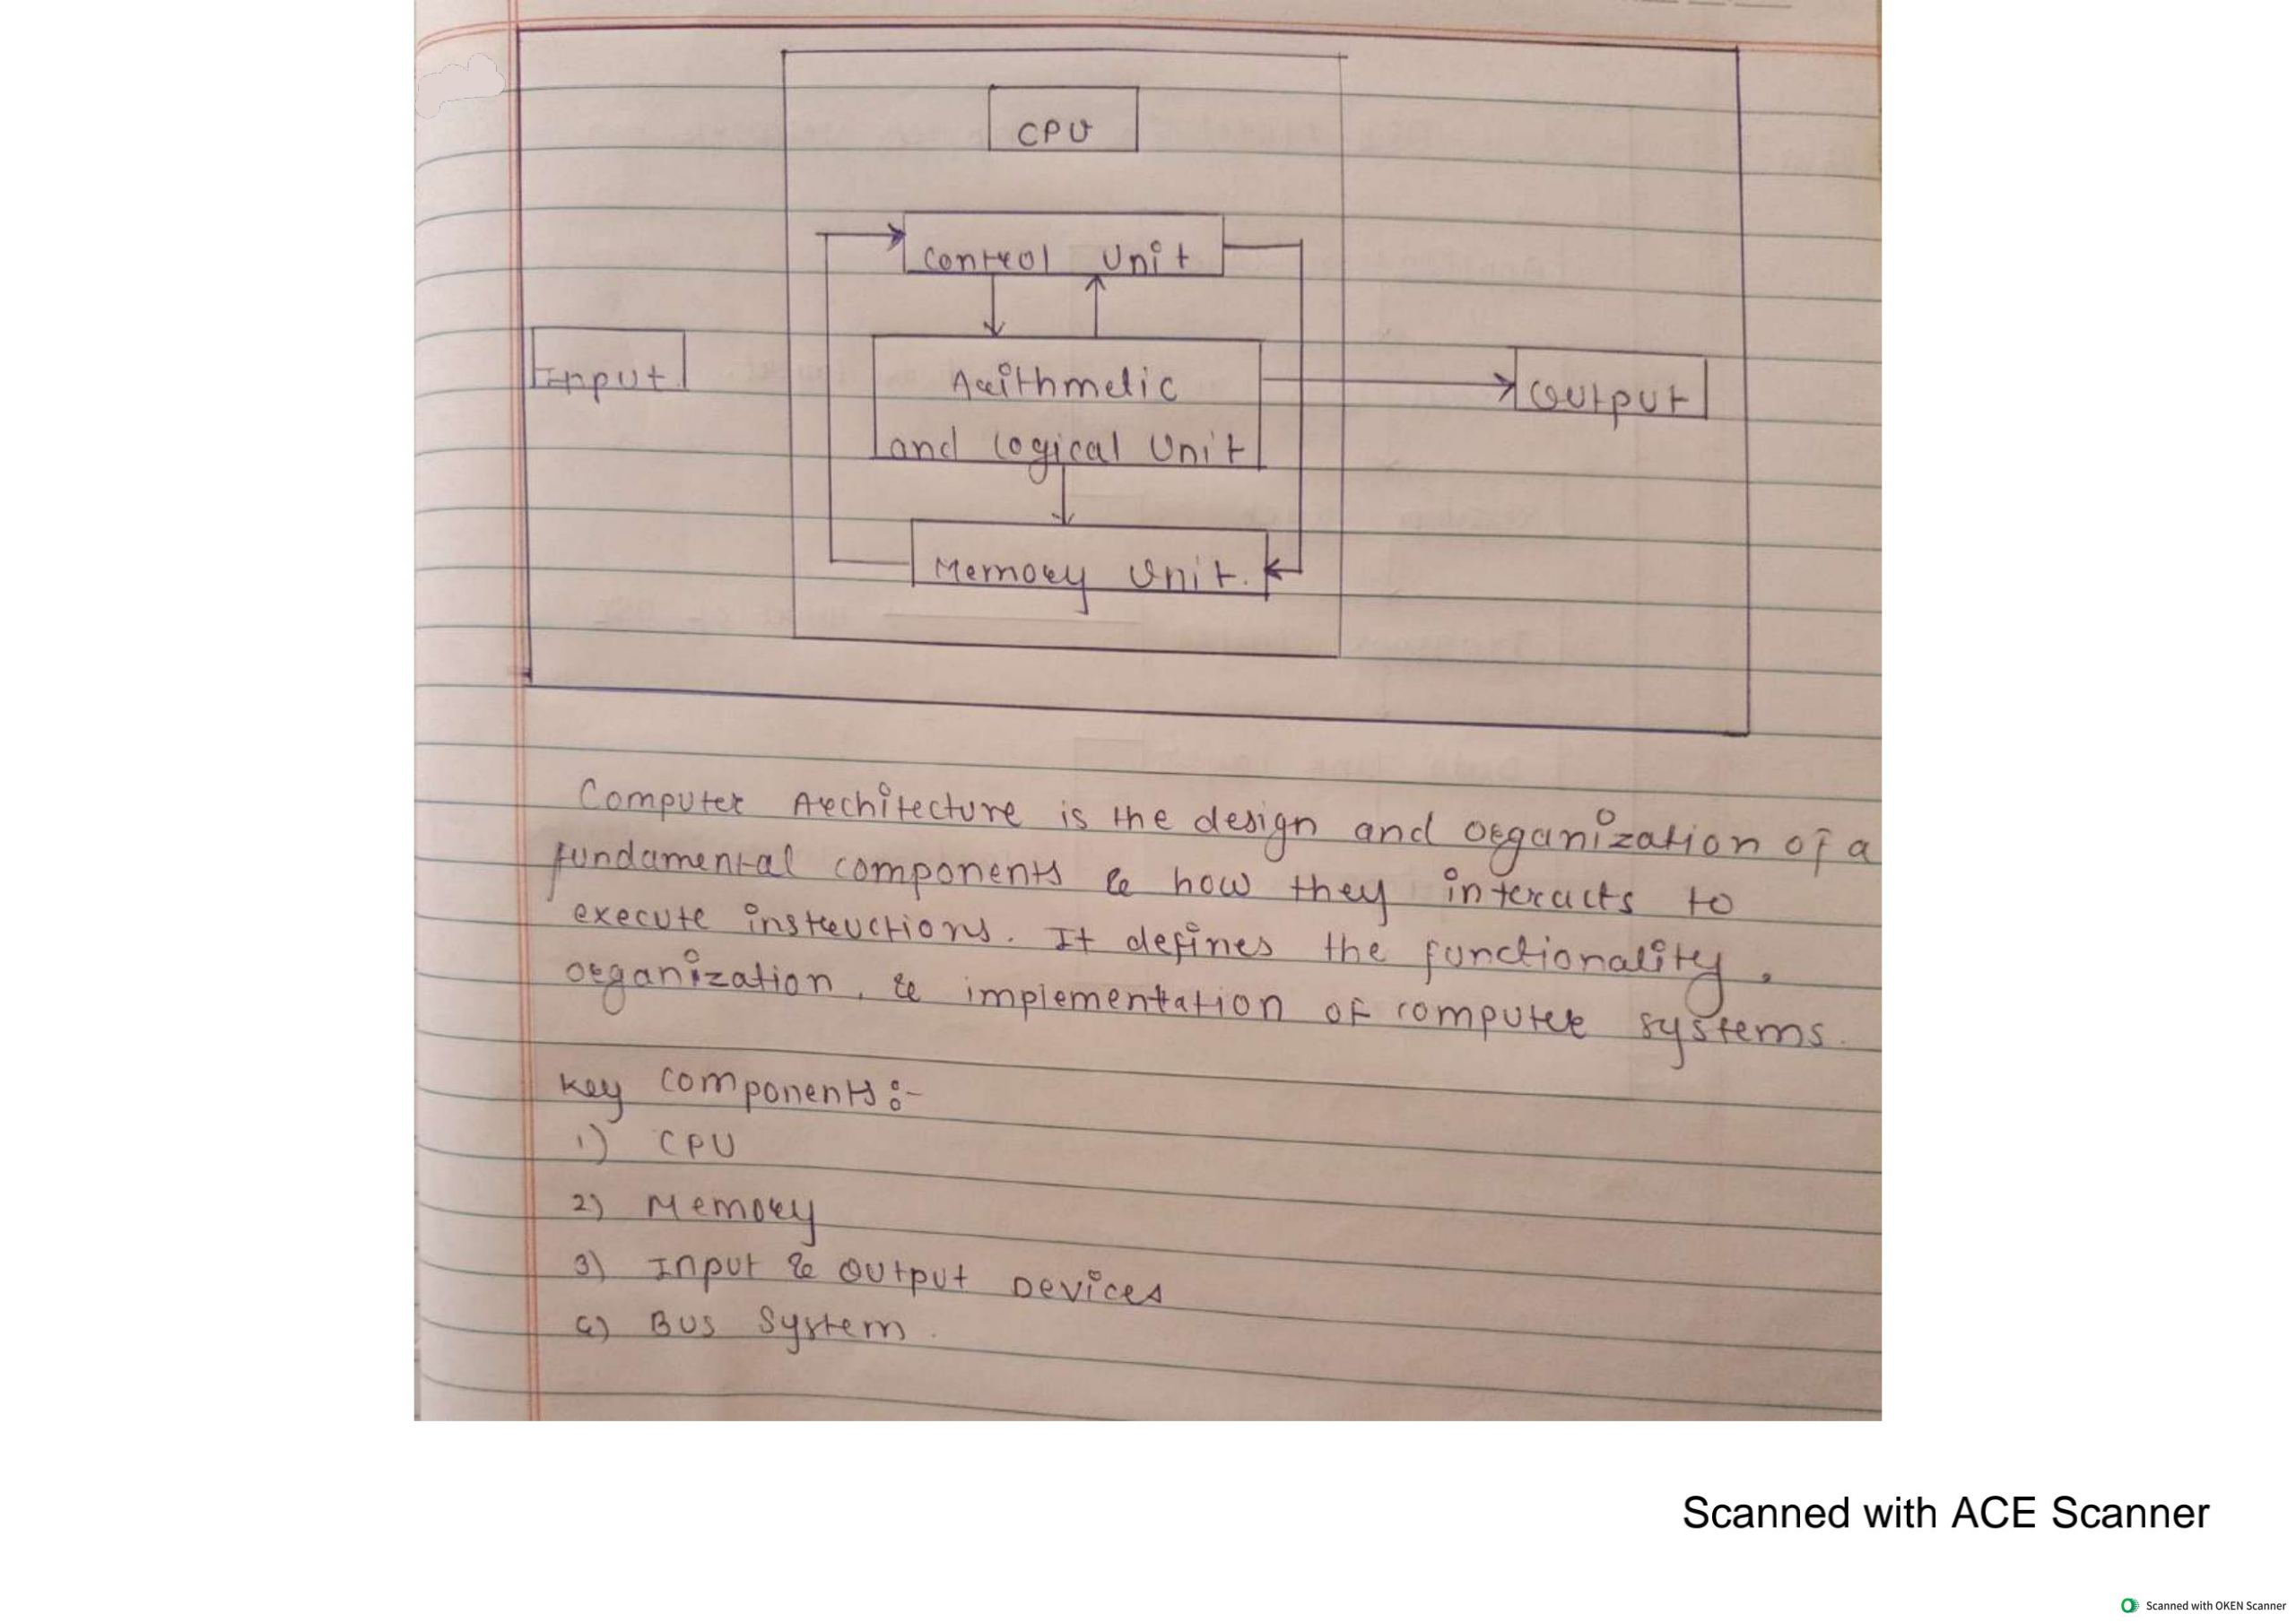 CPU
Control Unit
Input
Arithmetic
and logical Unit
Output
Memory Unit.
Computer Architecture is the design and organization of a
fundamental components & how they interacts to
execute instructions. It defines the functionality,
organization, & implementation of computer systems.
Key components:-
1) CPU
2) Memory
3) Input & Output Devices
4) Bus System.
Scanned with ACE Scanner
Scanned with OKEN Scanner